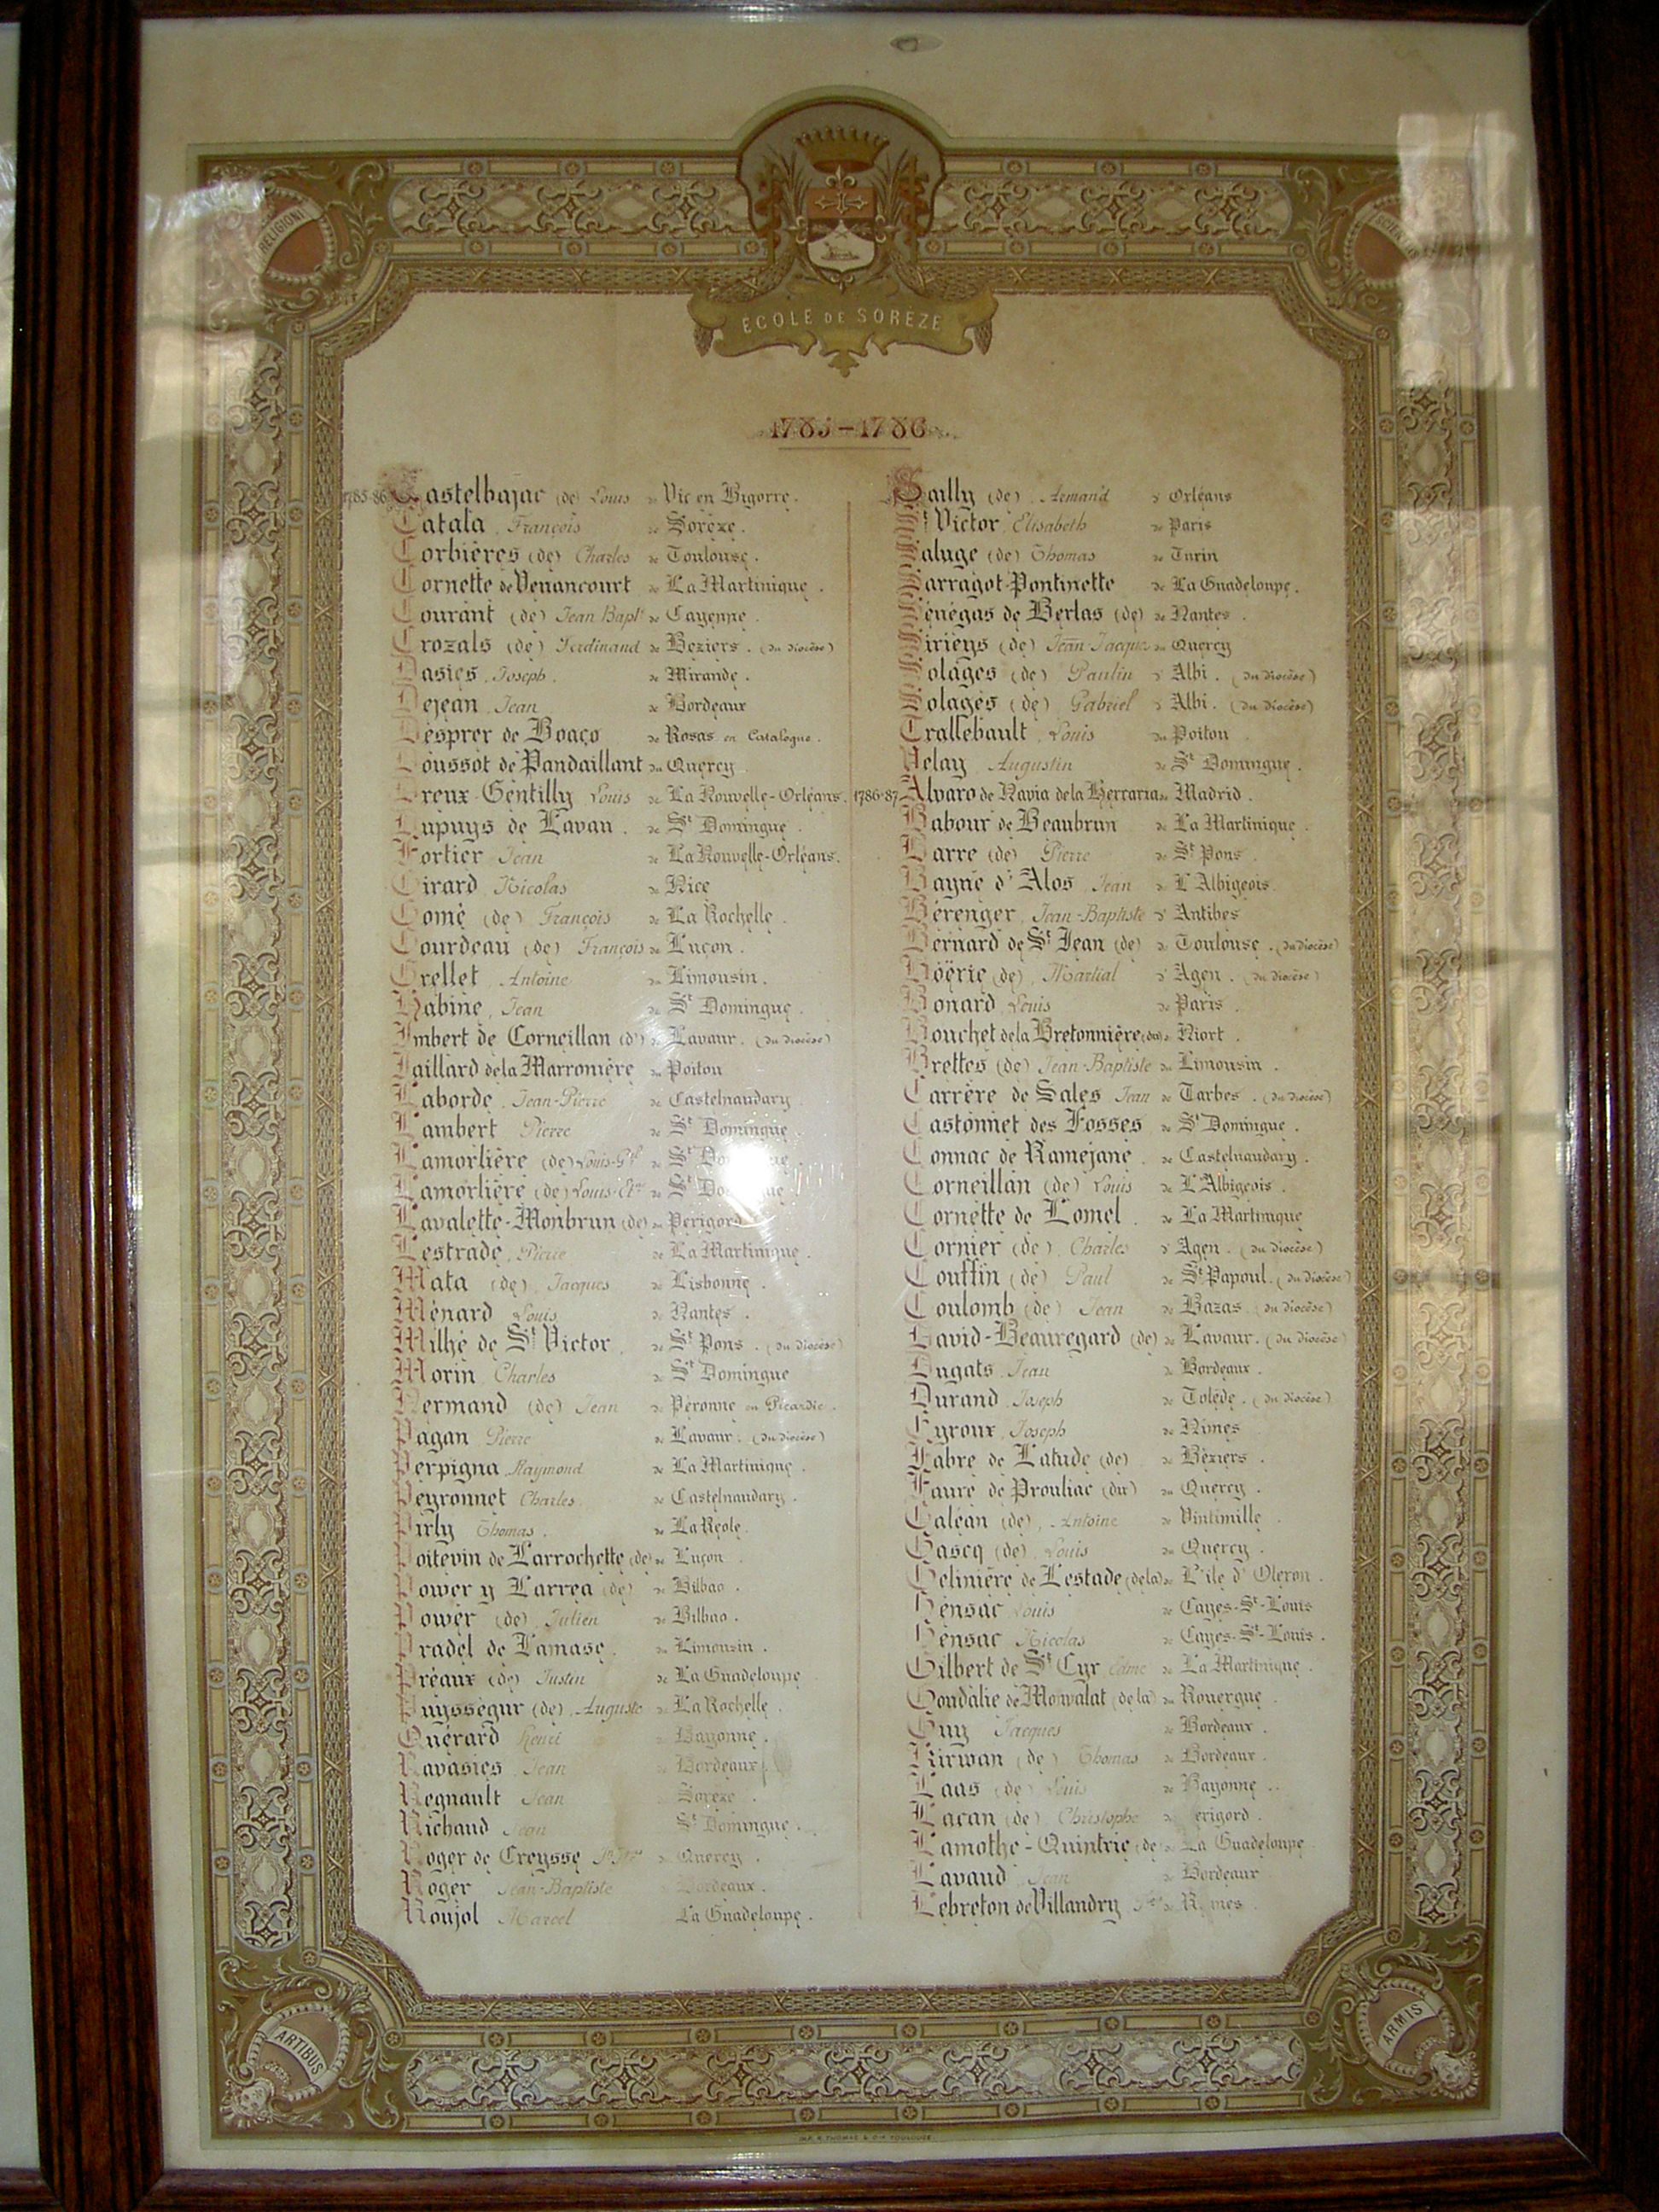 RELIGIONI
SCIENTIO
ECOLE DE SOREZE
1785-1786
1785-86 Castelbajac (de) Louis de Vic en Bigorre.
Catala, François de Sorèze.
Corbières (de) Charles de Toulouse.
Cornette de Venancourt de La Martinique.
Courant (de) Jean Bapt. de Cayenne.
Crozals (de) Ferdinand de Beziers. (du diocèse)
Dasies, Joseph. de Mirande.
Dejean Jean de Bordeaux
Desprer de Boaço de Rosas en Catalogne.
Doussot de Pandaillant du Quercy
Dreux-Gentilly Louis de La Nouvelle-Orléans.
Dupuys de Lavau. de St Domingue.
Fortier Jean de La Nouvelle-Orléans.
Girard, Nicolas de Nice
Gomé (de) François de La Rochelle.
Gourdeau (de) François de Luçon.
Grellet Antoine du Limousin.
Habine, Jean de St Domingue.
Imbert de Corneillan (d') de Lavaur. (du diocèse)
Jaillard de la Marronière du Poitou
Laborde, Jean-Pierre de Castelnaudary.
Lambert Pierre de St Domingue.
Lamorlière (de) Louis-Gel de St Domingue.
Lamorlière (de) Louis-Etne de St Domingue
Lavalette-Monbrun (de) du Perigord
Lestrade, Pierre de La Martinique.
Mata (de), Jacques de Lisbonne.
Ménard Louis de Nantes.
Milhé de St Victor. de St Pons. (du diocèse)
Morin Charles de St Domingue
Nermand (de) Jean de Péronne en Picardie.
Pagan Pierre de Lavaur. (du diocèse)
Perpigna, Raymond de La Martinique.
Peyronnet Charles. de Castelnaudary.
Pirly Thomas. de La Reole.
Poitevin de Larrochette (de) de Luçon.
Power y Larrea (de) de Bilbao.
Power (de) Julien de Bilbao.
Pradel de Lamase. du Limousin.
Préaux (de) Justin de La Guadeloupe
Puysségur (de) Auguste de La Rochelle.
Quérard Henri Bayonne.
Ravasies Jean Bordeaux
Regnault Jean Sorèze.
Richaud Jean St Domingue.
Roger de Creysse du Quercy.
Roger Jean-Baptiste Bordeaux.
Roujol Marcel La Guadeloupe.
Sailly (de) Armand d' Orléans
St Victor, Elisabeth de Paris
Saluge (de) Thomas de Turin
Sarragot-Pontinette de La Guadeloupe.
Sénégas de Berlas (de) de Nantes.
Sirieys (de) Jean-Jacques du Quercy
Solages (de) Paulin d' Albi. (du diocèse)
Solages (de) Gabriel d' Albi. (du diocèse)
Trallebault, Louis du Poitou
Velay Augustin de St Domingue.
1786-87 Alvaro de Navia de la Herraria de Madrid.
Babour de Beaubrun de La Martinique.
Barre (de) Pierre de St Pons.
Bayne d'Alos, Jean de L'Albigeois.
Bérenger, Jean-Baptiste d' Antibes
Bernard de St Jean (de) de Toulouse. (du diocèse)
Böërie (de), Martial d' Agen. (du diocèse)
Bonard Louis de Paris.
Bouchet de la Bretonnière (du) de Niort.
Brettes (de) Jean-Baptiste du Limousin.
Carrère de Sales Jean de Tarbes. (du diocèse)
Castonnet des Fosses de St Domingue.
Connac de Raméjane. de Castelnaudary.
Corneillan (de) Louis de L'Albigeois.
Cornette de Lomel. de La Martinique
Cornier (de) Charles d' Agen. (du diocèse)
Couffin (de) Paul de St Papoul. (du diocèse)
Coulomb (de) Jean de Bazas. (du diocèse)
David-Beauregard (de) de Lavaur. (du diocèse)
Dugats, Jean de Bordeaux.
Durand Joseph de Tolède. (du diocèse)
Eyroux, Joseph de Nimes
Fabre de Latude (de) de Béziers.
Faure de Prouliac (du) du Quercy.
Galéan (de), Antoine de Vintimille.
Gascq (de), Louis du Quercy.
Gelinière de Lestade (de la) de L'île d'Oleron.
Gensac Louis de Cayes-St-Louis
Gensac Nicolas de Cayes-St-Louis.
Gilbert de St Cyr Edme de La Martinique.
Goudalie de Mowalat (de la) du Rouergue.
Guy Jacques de Bordeaux.
Kirwan (de) Thomas de Bordeaux.
Laas (de) Louis de Bayonne.
Lacan (de) Christophe erigord.
Lamothe-Quintrie (de) de La Guadeloupe
Lavaud Jean de Bordeaux
Lebreton de Villandry
ARTIBUS
ARMIS